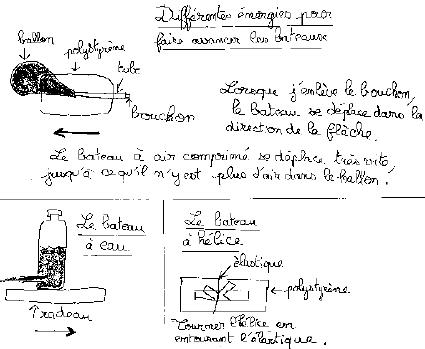 Différentes énergies pour
faire avancer les bateaux
ballon
polystyrène
tube
bouchon
Lorsque j'enlève le bouchon,
le bateau se déplace dans la
direction de la flèche.
Le bateau à air comprimé se déplace très vite,
jusqu'à ce qu'il n'y est plus d'air dans le ballon.
Le bateau
à eau
radeau
Le bateau
à hélice
élastique
polystyrène
Tourner l'hélice en
entourant l'élastique.